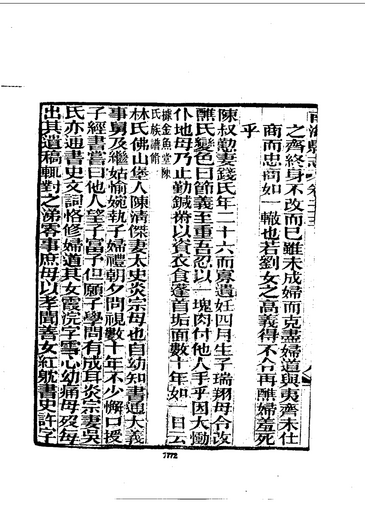 南海縣志
之齊終身不改而已雖未成婦而克盡婦道與夷齊未仕
商而忠商如一轍也若劉女之高義得不令再醮婦羞死
乎
陳叔勤妻錢氏年二十六而寡遺妊四月生子瑞翔母令改
醮氏變色曰節義至重吾忍以一塊肉付他人手乎因大慟
仆地母乃止勤鍼黹以資衣食蓬首垢面數十年如一日云
據金魚堂陳
氏族譜修
林氏佛山堡人陳清傑妻太史炎宗母也自幼知書通大義
事舅及繼姑愉婉執子婦禮朝夕問視數十年不少懈口授
子經書嘗曰他人望子富予但願子學問有成耳炎宗妻吳
氏亦通書史文詞恪修婦道其女霞浣字雪心幼痛母歿每
出其遺稿輒對之涕零事庶母以孝聞善女紅躭書史許字
7772